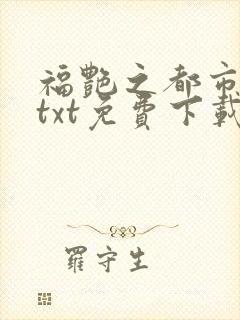 福艷之都市
txt免費下載
羅守生